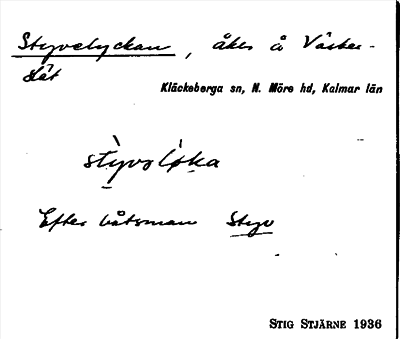 Styvelyckan, åker å Väster-
slät
Kläckeberga sn, N. Möre hd, Kalmar län
styvoløka
Efter båtsman Styv
STIG STJÄRNE 1936